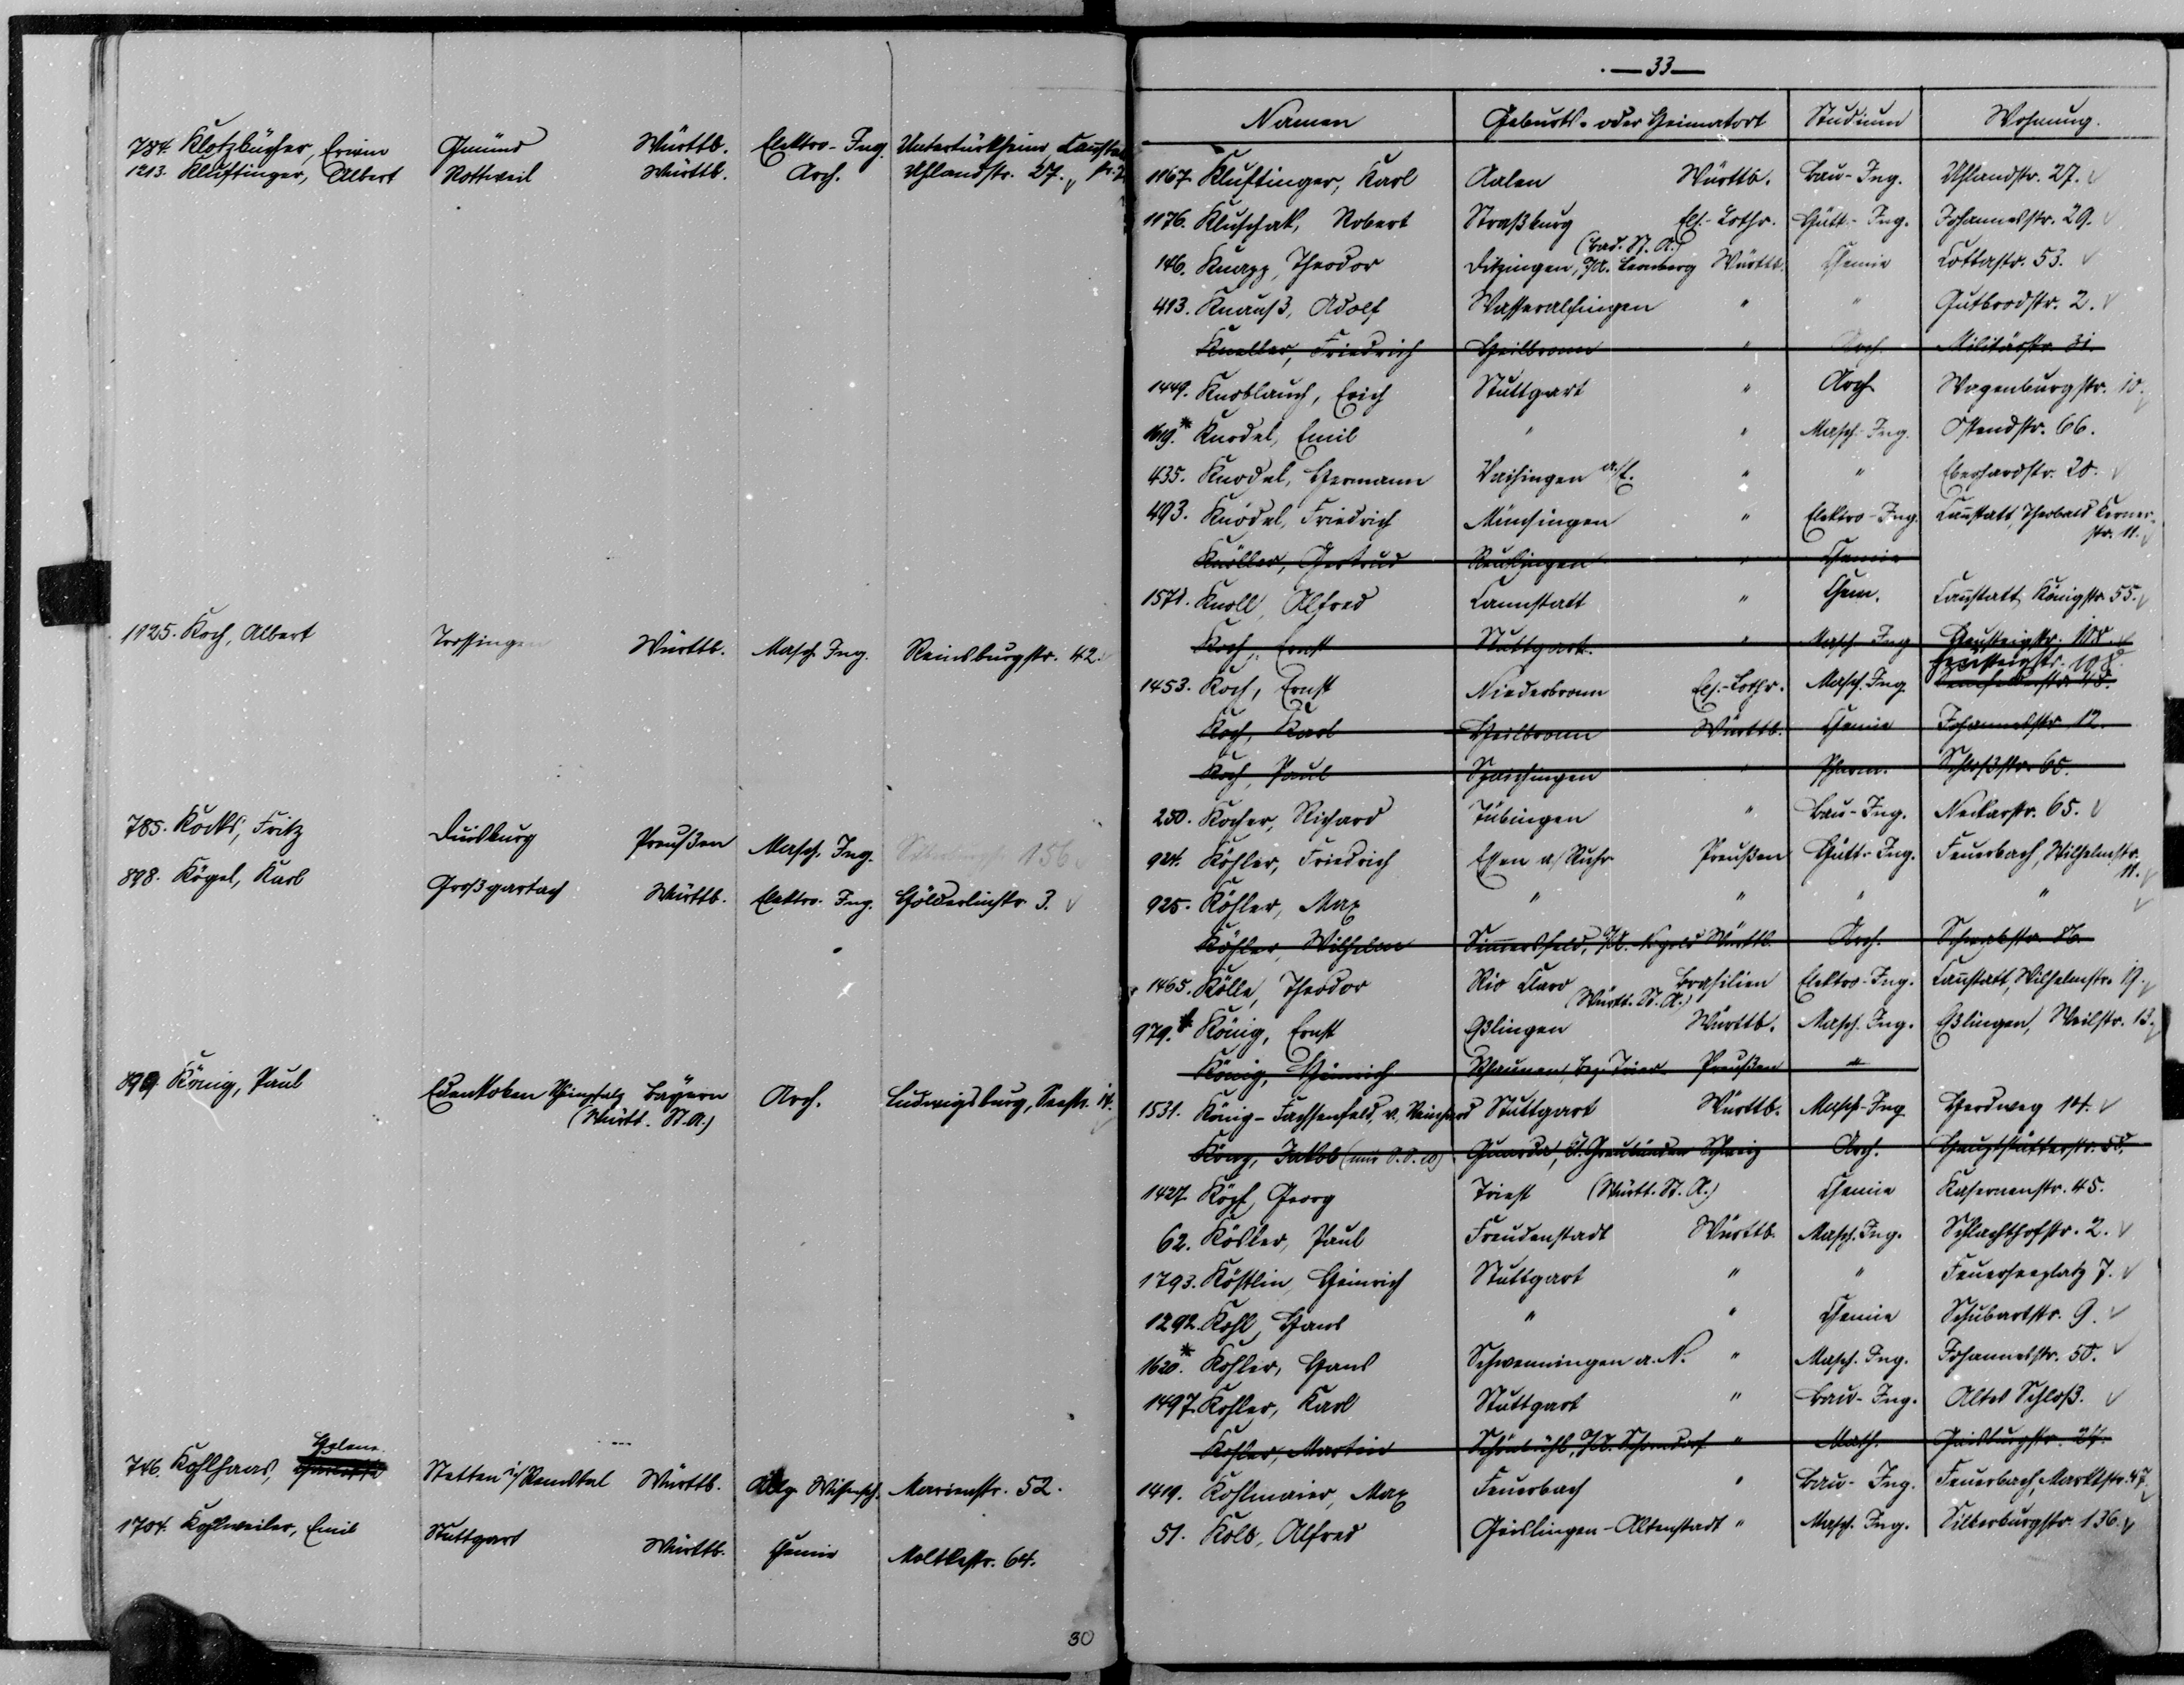 784. Klotzbücher, Erwin Gmünd Württb. Elektro-Ing. Untertürkheim, Cannstatt
str. 7
1213. Kluftinger, Albert Rottweil Württb. Arch. Uhlandstr. 27.
1125. Koch, Albert Trossingen Württb. Masch. Ing. Reinsburgstr. 42.
785. Kocks, Fritz Duisburg Preußen Masch. Ing. 156
898. Kögel, Karl Großgartach Württb. Elektro-Ing. Hölderlinstr. 3.
899. König, Paul Edenkoben Rheinpfalz Bayern Arch. Ludwigsburg, Seestr. 14.
(Württ. St. A.)
Helene
746. Kohlhaas, Stetten i/Remstal Württb. Allg. Wissensch. Marienstr. 52.
1704. Kohlweiler, Emil Stuttgart Württb. Chemie Moltkestr. 64.
30
— 33 —
Namen Geburts- oder Heimatort Studium Wohnung.
1167. Kluftinger, Karl Aalen Württb. Bau-Ing. Uhlandstr. 27.
1176. Kluschak, Robert Straßburg Els.-Lothr. Hütt-Ing. Johannesstr. 29.
(Bad. St. A.)
146. Knapp, Theodor Ditzingen, O/A. Leonberg Württb. Chemie Cottastr. 53.
413. Knauß, Adolf Wasseralfingen " " Gutbrodstr. 2.
Kneller, Friedrich Heilbronn " Arch. Militärstr. 31.
1449. Knoblauch, Erich Stuttgart " Arch Wagenburgstr. 10.
1619.* Knodel, Emil " " Masch-Ing. Ostendstr. 66.
435. Knodel, Hermann Vaihingen a/E. " " Eberhardstr. 20.
493. Knödel, Friedrich Münsingen " Elektro-Ing. Cannstatt, Theobald Kerner-
str. 11.
Knöller, Gertrud Reutlingen " Chemie
1571. Knoll, Alfred Cannstatt " Chem. Cannstatt, Königstr. 55.
Koch, Ernst Stuttgart. " Masch-Ing Heusteigstr. 108.
Heusteigstr. 108.
1453. Koch, Ernst Niederbronn Els.-Lothr. Masch. Ing.
Koch, Karl Heilbronn Württb. Chemie Johannesstr. 12.
Koch, Paul Spaichingen " Pharm. Schloßstr. 60.
250. Kocher, Richard Tübingen " Bau-Ing. Neckarstr. 65.
924. Köhler, Friedrich Essen a/Ruhr Preußen Hütt-Ing. Feuerbach, Wilhelmstr.
11.
925. Köhler, Max " " " "
Köhler, Wilhelm Simmersfeld, O/A. Nagold Württb. Arch. Schwabstr. 86.
1465. Kölle, Theodor Rio Claro Brasilien Elektro-Ing. Cannstatt, Wilhelmstr. 19.
(Württ. St. A.)
979.* König, Ernst Eßlingen Württb. Masch. Ing. Eßlingen, Weilstr. 13.
König, Heinrich Rhaunen, Bez. Trier Preußen "
1531. König-Fachsenfeld, v., Reinhard Stuttgart Württb. Masch-Ing Herdweg 14.
Könz, Jakob Guarda, Kt. Graubünden Schweiz Arch. Hauptstätterstr. 58.
1427. Köpf, Georg Triest (Württ. St. A.) Chemie Kasernenstr. 45.
62. Kösler, Paul Freudenstadt Württb. Masch. Ing. Schlachthofstr. 2.
1793. Köstlin, Heinrich Stuttgart " " Feuerseeplatz 7.
1292. Kohl, Hans " " Chemie Schubartstr. 9.
1620.* Kohler, Hans Schwenningen a. N. " Masch. Ing. Johannesstr. 50.
1497. Kohler, Karl Stuttgart " Bau-Ing. Altes Schloß.
Kohler, Martin Schönbühl, O/A. Schorndorf " Math. Gaisburgstr. 27.
1419. Kohlmaier, Max Feuerbach " Bau-Ing. Feuerbach, Marktstr. 47.
51. Kolb, Alfred Geislingen-Altenstadt " Masch. Ing. Silberburgstr. 136.